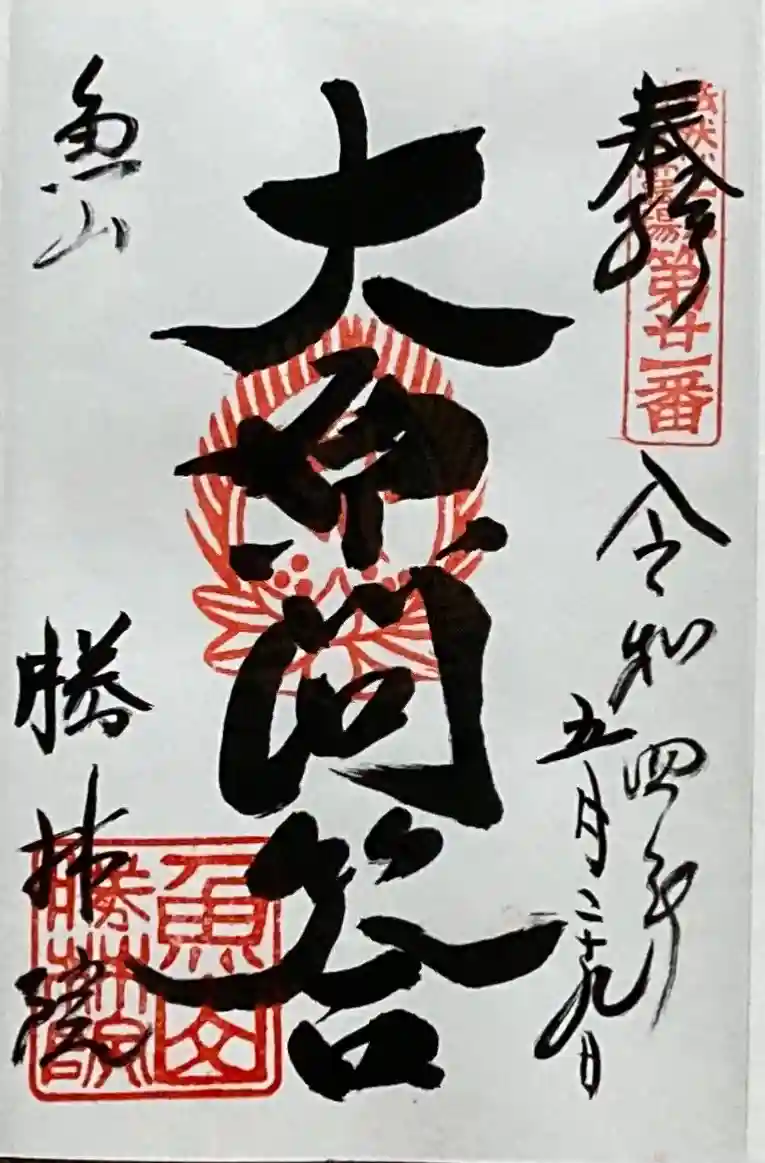 奉拝
第廿一番
令和四年
五月二十九日
大原問答
魚山
勝林院
魚山
勝林院